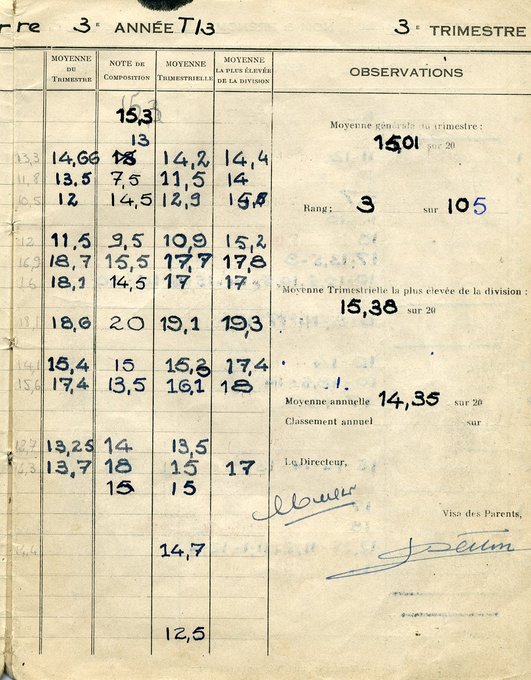 rre 3E ANNÉE T13 3E TRIMESTRE
MOYENNE DU TRIMESTRE
NOTE DE COMPOSITION
MOYENNE TRIMESTRIELLE
MOYENNE LA PLUS ÉLEVÉE DE LA DIVISION
OBSERVATIONS
15,3
13
14,66 18 14,2 14,4
13,5 7,5 11,5 14
12 14,5 12,9
11,5 9,5 10,9 15,2
18,7 15,5 17,7 17,8
18,1 14,5 17 17
18,6 20 19,1 19,3
15,4 15 15,2 17,4
17,4 13,5 16,1 18
13,25 14 13,5
13,7 18 15 17
15 15
14,7
12,5
Moyenne générale du trimestre :
15,01 sur 20
Rang : 3 sur 105
Moyenne Trimestrielle la plus élevée de la division :
15,38 sur 20
Moyenne annuelle 14,35 sur 20
Classement annuel sur
Le Directeur,
Visa des Parents,